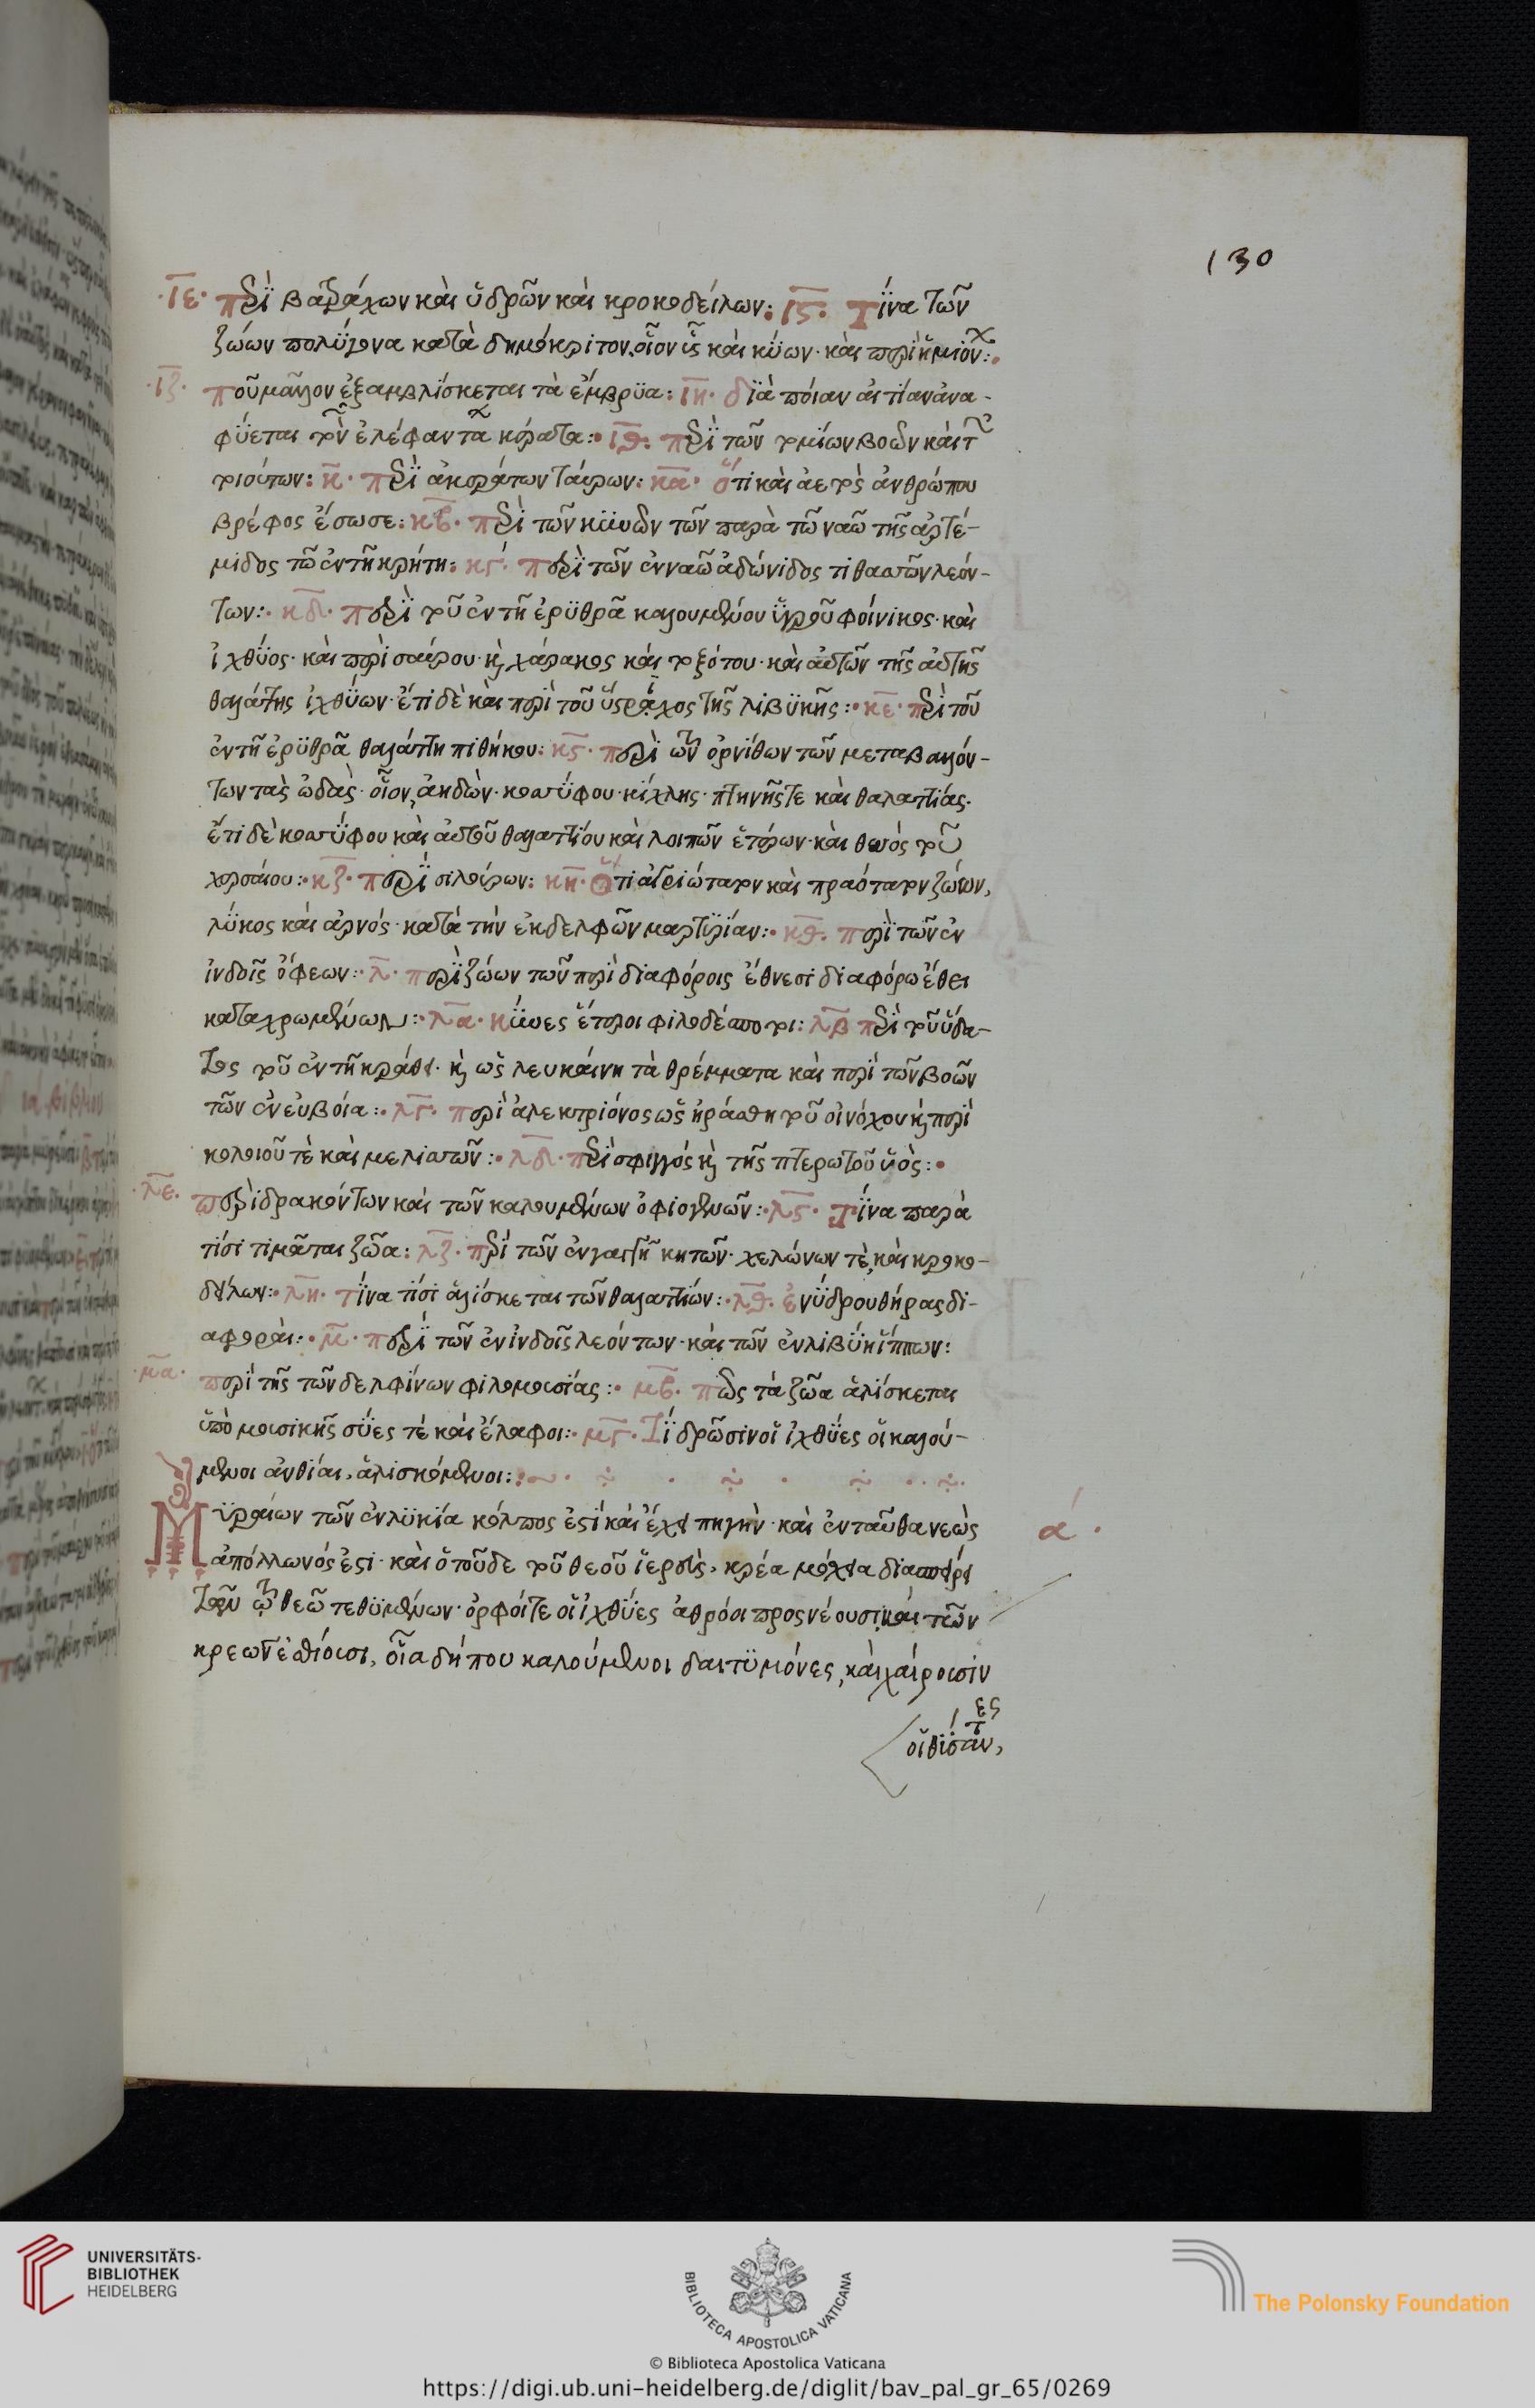 130
·ιε· περὶ βατράχων καὶ ὕδρων καὶ κροκοδείλων: ις· τίνα τῶν
ζώων πολύγονα κατὰ δημόκριτον. οἷον ὗς καὶ κύων· καὶ περὶ ἡμιόν:
·ιζ· ποῦ μᾶλλον ἐξαμβλίσκεται τὰ ἔμβρυα: ιη· διὰ ποίαν αἰτίαν ἀνα-
φύεται τῶν ἐλεφάντ τὰ κέρατα: ιθ· περὶ τῶν τομίων βοῶν καὶ τ
τοιούτων: κ· περὶ ἀκεράτων ταύρων: κα· ὅτι καὶ ἀετὸς ἀνθρώπου
βρέφος ἔσωσε: κβ· περὶ τῶν κυνῶν τῶν παρὰ τῶ ναῶ τῆς ἀρτέ-
μιδος τῶ ἐν τῆ κρήτη: κγ· περὶ τῶν ἐν ναῶ ἀδώνιδος τιθασσῶν λεόν-
των: κδ· περὶ τοῦ ἐν τῆ ἐρυθρᾶ καλουμένου ὑγροῦ φοίνικος· καὶ
ἰχθύος· καὶ περὶ σαύρου· κὶ χάρακος καὶ τοξότου· καὶ αὐτῶν τῆς αὐτῆς
θαλάττης ἰχθύων· ἔτι δὲ καὶ περὶ τοῦ ὕστριχος τῆς λιβυκῆς: κε· περὶ τοῦ
ἐν τῆ ἐρυθρᾶ θαλάττη πιθήκου: κς· περὶ τῶν ὀρνίθων τῶν μεταβαλόν-
των τὰς ὠδὰς· οἷον, ἀηδών· κοσσύφου· κίχλης· πτηνῆς τε καὶ θαλαττίας.
ἔτι δὲ κοσσύφου καὶ αὐτοῦ θαλαττίου καὶ λοιπῶν ἑτέρων· καὶ θωὸς τοῦ
χερσαίου: κζ· περὶ σιλούρων: κη· Ὅτι ἀγριώτατον καὶ πραότατον ζώων,
λύκος καὶ ἀρνός· κατὰ τὴν ἐκ δελφῶν μαρτυρίαν: κθ· περὶ τῶν ἐν
ἰνδοῖς ὄφεων: λ· περὶ ζώων τῶν περὶ διαφόροις ἔθνεσι διαφόρω ἔθει
καταχρωμένων: λα· κύνες ἕτεροι φιλοδέσποτοι: λβ περὶ τοῦ ὕδα-
τος τοῦ ἐν τῆ κράθει· κὶ ὡς λευκαίνη τὰ θρέμματα καὶ περὶ τῶν βοῶν
τῶν ἐν εὐβοία: λγ· περὶ ἀλεκτριόνος ὡς ἠράσθη τοῦ οἰνόχου κὶ περὶ
κολοιοῦ τὲ καὶ μελισσῶν: λδ· περὶ σφιγγός κὶ τῆς πτερωτοῦ ὑὸς:
·λε· περὶ δρακόντων καὶ τῶν καλουμένων ὀφιογενῶν: λς· Τίνα παρὰ
τίσι τιμᾶται ζῶα: λζ· περὶ τῶν ἐν γαιτῆ κητῶν· χελώνων τὲ, καὶ κροκο-
δείλων: λη· τίνα τίσι ἁλίσκεται τῶν θαλαττίων: λθ· ἐνύδρου θήρας δι-
αφοραί: μ· περὶ τῶν ἐν ἰνδοῖς λεόντων· καὶ τῶν ἐν λιβύη ἵππων:
·μα· περὶ τῆς τῶν δελφίνων φιλομουσίας: μβ· πῶς τὰ ζῶα ἁλίσκεται
ὑπὸ μουσικῆς σύες τὲ καὶ ἔλαφοι: μγ· Τί δρῶσιν οἱ ἰχθύες οἱ καλού-
μενοι ἀνθίαι, ἁλισκόμενοι:
Μυραίων τῶν ἐν λυκία κόλπος ἐστί καὶ ἔχει πηγὴν· καὶ ἐνταῦθα νεὼς
α·
ἀπόλλωνός ἐστι· καὶ ὁ τοῦδε τοῦ θεοῦ ἱερεὺς, κρέα μόχεια διασπείρει
τῶν τῶ θεῶ τεθυμένων· ὀρφοί τε οἱ ἰχθύες ἀθρόοι προσνέουσι, καὶ τῶν
κρεῶν ἐσθίουσι, οἷα δήπου καλούμενοι δαιτυμόνες, καὶ χαίρουσιν
οἱ θύσαντες,
UNIVERSITÄTS-
BIBLIOTHEK
HEIDELBERG
BIBLIOTECA APOSTOLICA VATICANA
The Polonsky Foundation
© Biblioteca Apostolica Vaticana
https://digi.ub.uni-heidelberg.de/diglit/bav_pal_gr_65/0269